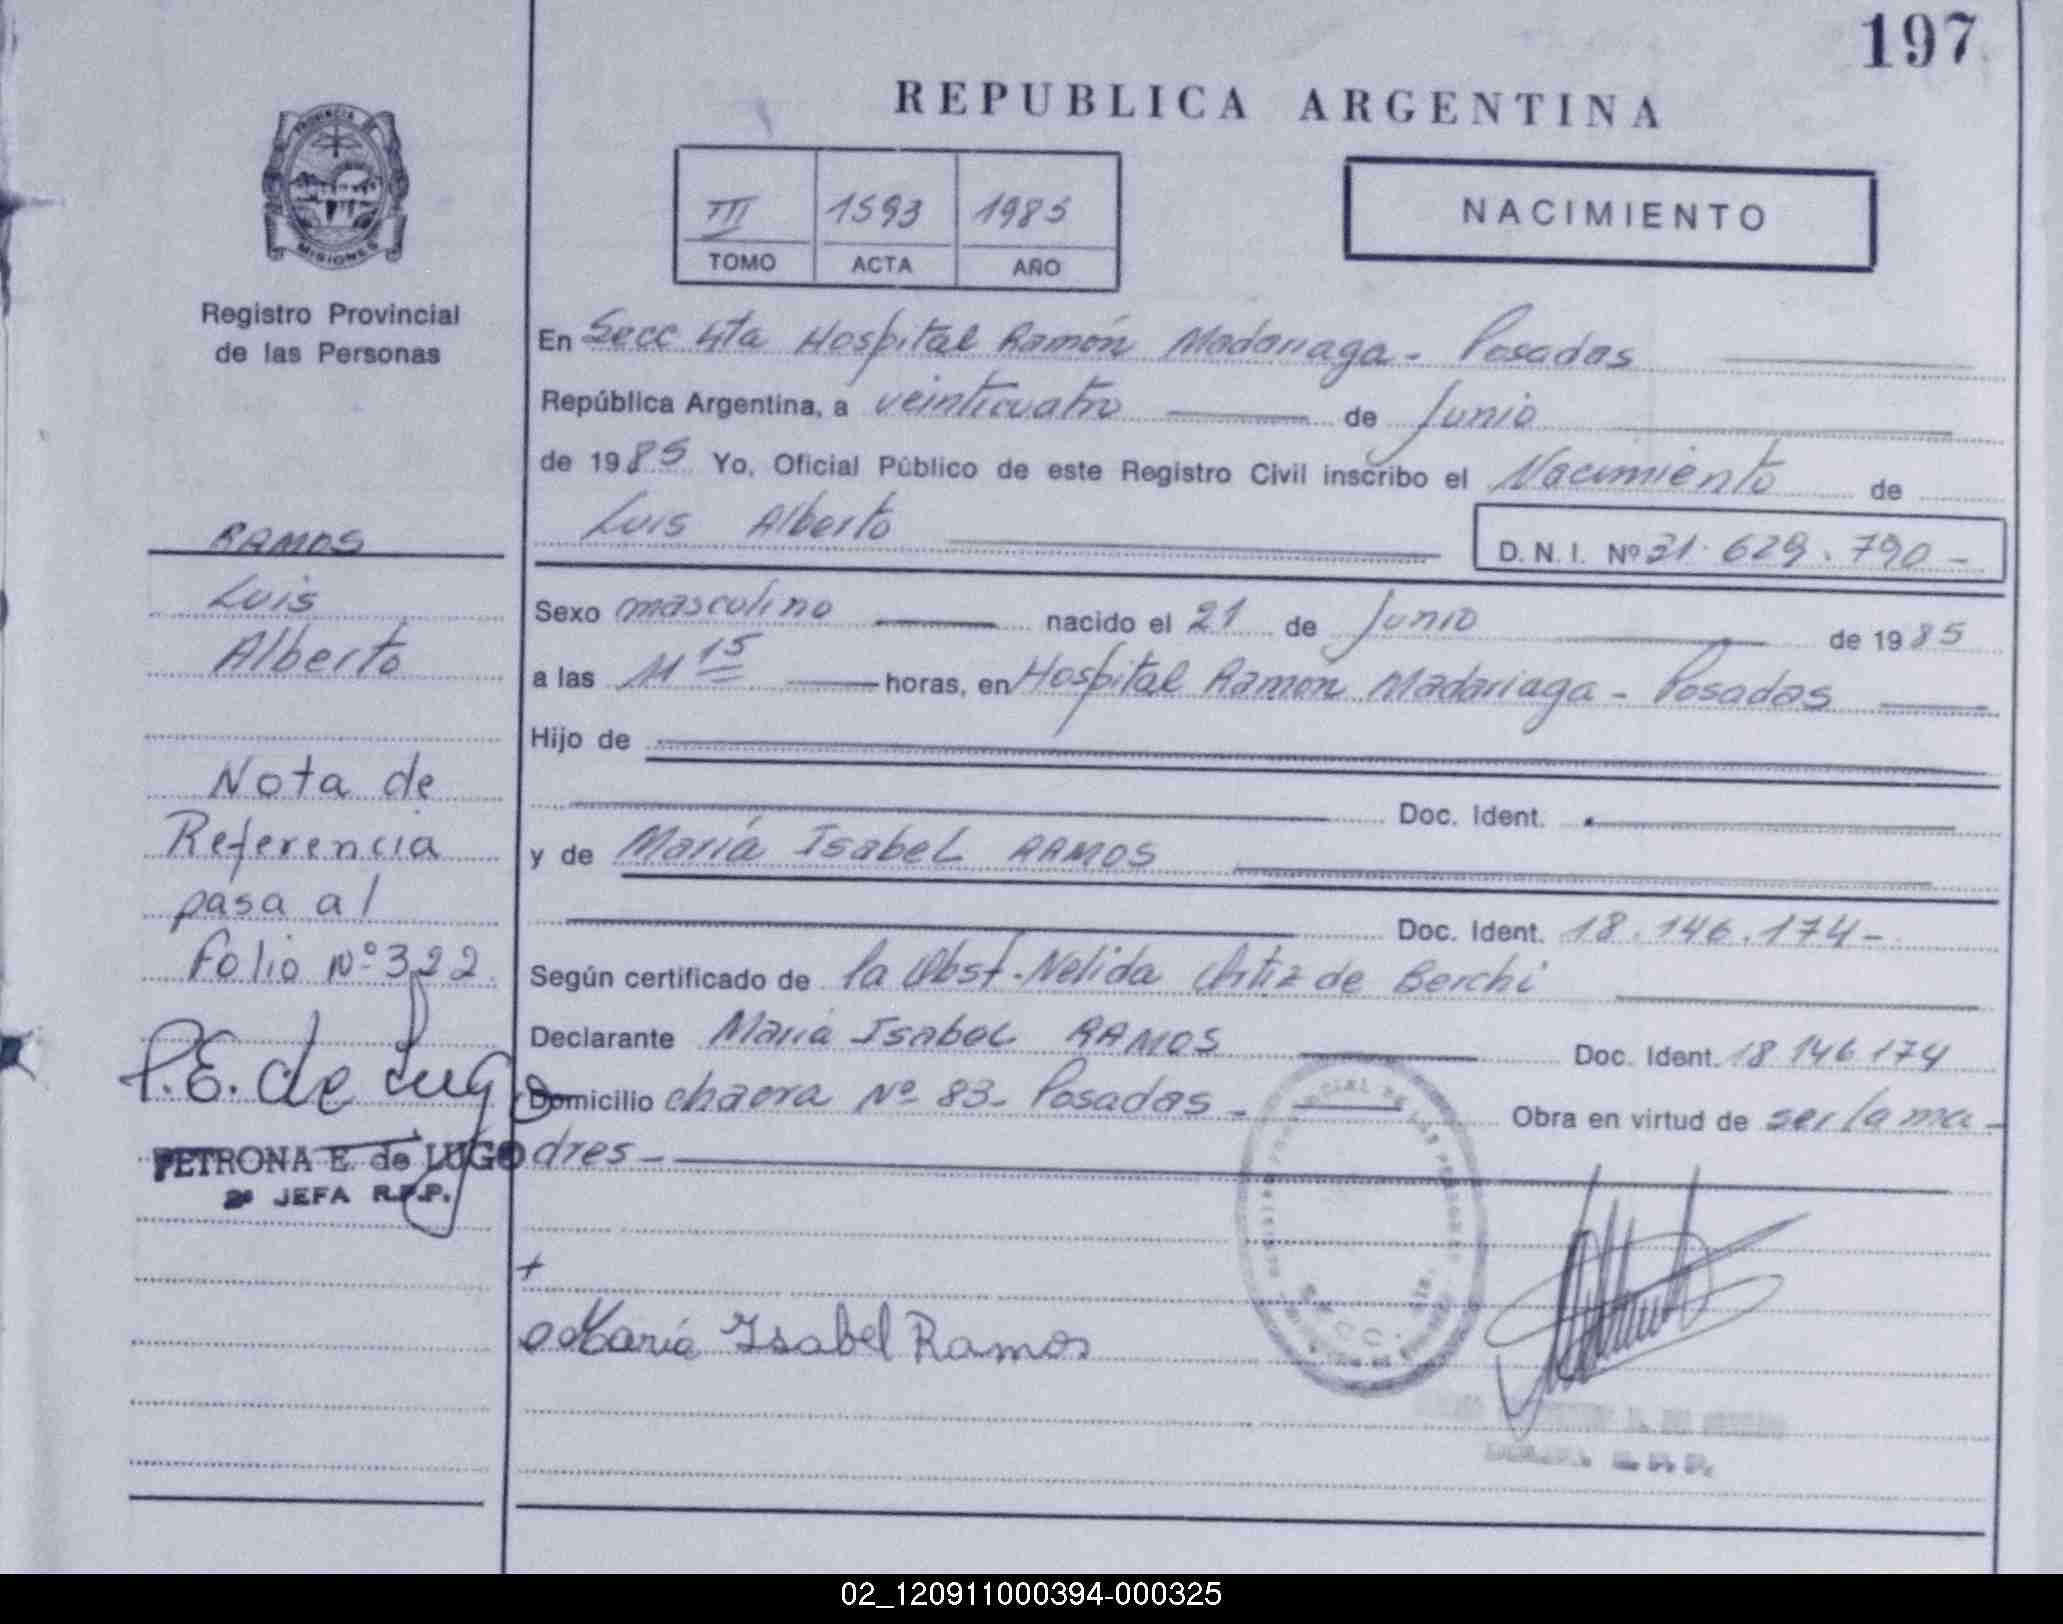 197
REPUBLICA ARGENTINA
PROVINCIA DE
MISIONES
Registro Provincial
de las Personas
III 1593 1985
TOMO ACTA AÑO
NACIMIENTO
En Secc 4ta Hospital Ramón Madariaga - Posadas
República Argentina, a veinticuatro de Junio
de 1985 Yo, Oficial Público de este Registro Civil inscribo el Nacimiento de
Luis Alberto D. N. I. Nº 31.629.790-
Sexo masculino nacido el 21 de Junio de 1985
a las 11 15 horas, en Hospital Ramón Madariaga - Posadas
Hijo de
Doc. Ident.
y de María Isabel RAMOS
Doc. Ident. 18.146.174-
Según certificado de la Obst. Nelida Ortiz de Berchi
Declarante María Isabel RAMOS Doc. Ident. 18 146 174
Domicilio chacra Nº 83- Posadas- Obra en virtud de ser la ma-
dres-
María Isabel Ramos
RAMOS
Luis
Alberto
Nota de
Referencia
pasa al
Folio Nº 322
P.E. de Lugo
PETRONA E. de LUGO
2ª JEFA R.P.P.
02_120911000394-000325